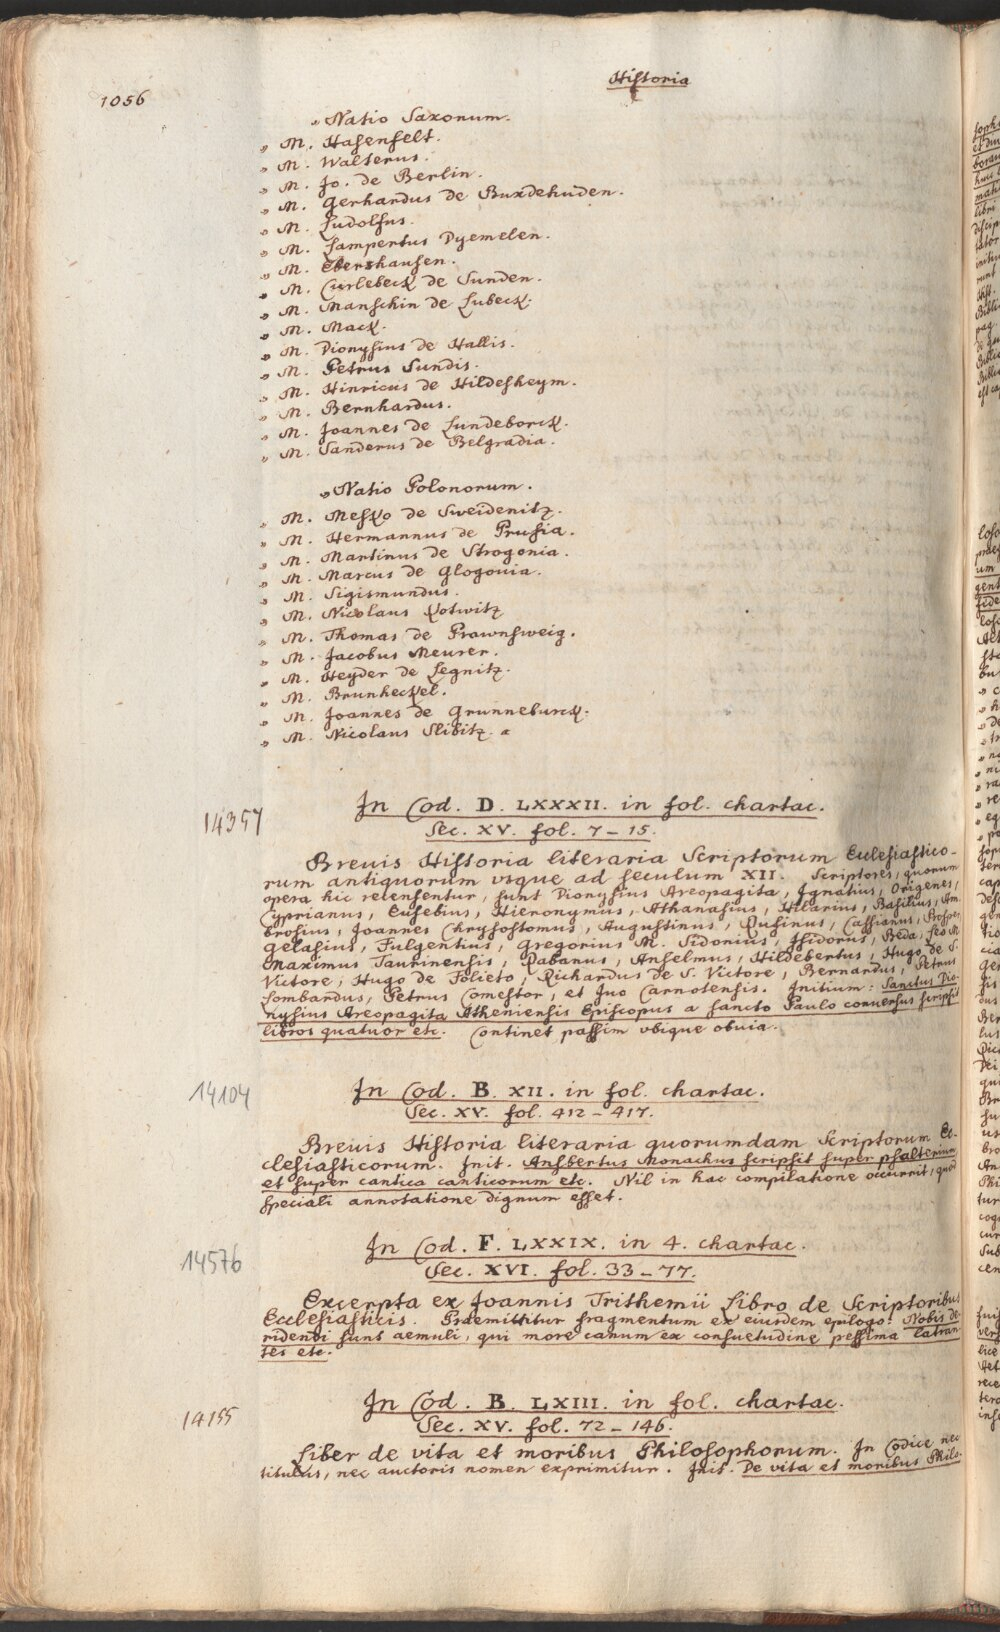 1056
Historia
„Natio Saxonum.
„ M. Hasenfelt.
„ M. Walterus.
„ M. Jo. de Berlin.
„ M. Gerhardus de Buxdehuden.
„ M. Ludolfus.
„ M. Lampertus Dyemelen.
„ M. Ebershausen.
„ M. Curlebeck de Sunden.
„ M. Manschin de Lubeck.
„ M. Mack.
„ M. Dionysius de Hallis.
„ M. Petrus Sundis.
„ M. Hinricus de Hildesheym.
„ M. Bernhardus.
„ M. Joannes de Lundeborck.
„ M. Sanderus de Belgradia.
„Natio Polonorum.
„ M. Mesko de Sweidenitz.
„ M. Hermannus de Prusia.
„ M. Martinus de Strogonia.
„ M. Marcus de Glogovia.
„ M. Sigismundus.
„ M. Nicolaus Kotwitz
„ M. Thomas de Prawnsweig.
„ M. Jacobus Meurer.
„ M. Heyder de Legnitz.
„ M. Brunheckel.
„ M. Joannes de Grunneburck.
„ M. Nicolaus Slibitz. „
14357
In Cod. D. LXXXII. in fol. chartac.
Sec. XV. fol. 7-15.
Breuis Historia literaria Scriptorum Ecclesiastico-
rum antiquorum vsque ad seculum XII. Scriptores, quorum
opera hic recensentur, sunt Dionysius Areopagita, Ignatius, Origenes,
Cyprianus, Eusebius, Hieronymus, Athanasius, Hilarius, Basilius, Am-
brosius, Joannes Chrysostomus, Augustinus, Rufinus, Cassianus, Prosper,
Gelasius, Fulgentius, Gregorius M. Sidonius, Isidorus, Beda, Leo M.
Maximus Taurinensis, Rabanus, Anselmus, Hildebertus, Hugo de S.
Victore, Hugo de Folieto, Richardus de S. Victore, Bernardus, Petrus
Lombardus, Petrus Comestor, et Iuo Carnotensis. Initium: Sanctus Dio-
nysius Areopagita Atheniensis Episcopus a sancto Paulo conversus scripsit
libros quatuor etc. Continet passim vbique obuia.
14104
In Cod. B. XII. in fol. chartac.
Sec. XV. fol. 412-417.
Breuis Historia literaria quorumdam Scriptorum Ec-
clesiasticorum. Init. Ansbertus Monachus scripsit super psalterium
et super cantica canticorum etc. Nil in hac compilatione occurrit, quod
speciali annotatione dignum esset.
14576
In Cod. F. LXXIX. in 4. chartac.
Sec. XVI. fol. 33-77.
Excerpta ex Joannis Trithemii Libro de Scriptoribus
Ecclesiasticis. Praemittitur fragmentum ex eiusdem epilogo: Nobis de-
ridendi sunt aemuli, qui more canum ex consuetudine pessima latran-
tes etc.
14155
In Cod. B. LXIII. in fol. chartac.
Sec. XV. fol. 72-146.
Liber de vita et moribus Philosophorum. In Codice nec
titulus, nec auctoris nomen exprimitur. Init. De vita et moribus Philo-